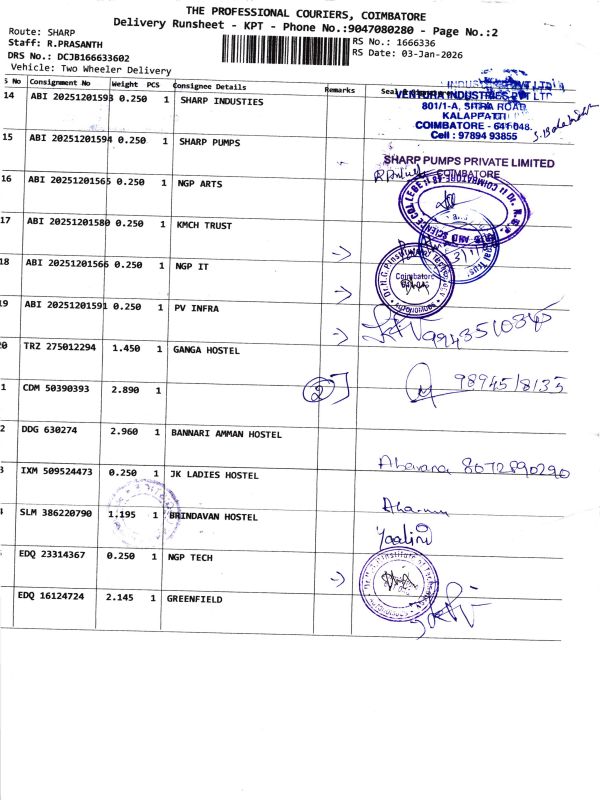 THE PROFESSIONAL COURIERS, COIMBATORE
Delivery Runsheet - KPT - Phone No.:9047080280 - Page No.:2
Route: SHARP
Staff: R.PRASANTH
DRS No.: DCJB166633602
Vehicle: Two Wheeler Delivery
RS No.: 1666336
RS Date: 03-Jan-2026
S No Consignment No Weight PCS Consignee Details Remarks Seal
14 ABI 20251201593 0.250 1 SHARP INDUSTIES
INDUSTRIES PVT LTD
VENTURA INDUSTRIES PVT LTD
801/1-A, SITRA ROAD
KALAPPATTI
COIMBATORE - 641 048.
Cell : 97894 93855
15 ABI 20251201594 0.250 1 SHARP PUMPS
SHARP PUMPS PRIVATE LIMITED
COIMBATORE
16 ABI 20251201565 0.250 1 NGP ARTS
17 ABI 20251201580 0.250 1 KMCH TRUST
18 ABI 20251201566 0.250 1 NGP IT
Coimbatore
19 ABI 20251201591 0.250 1 PV INFRA
9943510345
20 TRZ 275012294 1.450 1 GANGA HOSTEL
1 CDM 50390393 2.890 1
2
9894518135
2 DDG 630274 2.960 1 BANNARI AMMAN HOSTEL
3 IXM 509524473 0.250 1 JK LADIES HOSTEL
8072890290
4 SLM 386220790 1.195 1 BRINDAVAN HOSTEL
Yaalini
EDQ 23314367 0.250 1 NGP TECH
EDQ 16124724 2.145 1 GREENFIELD